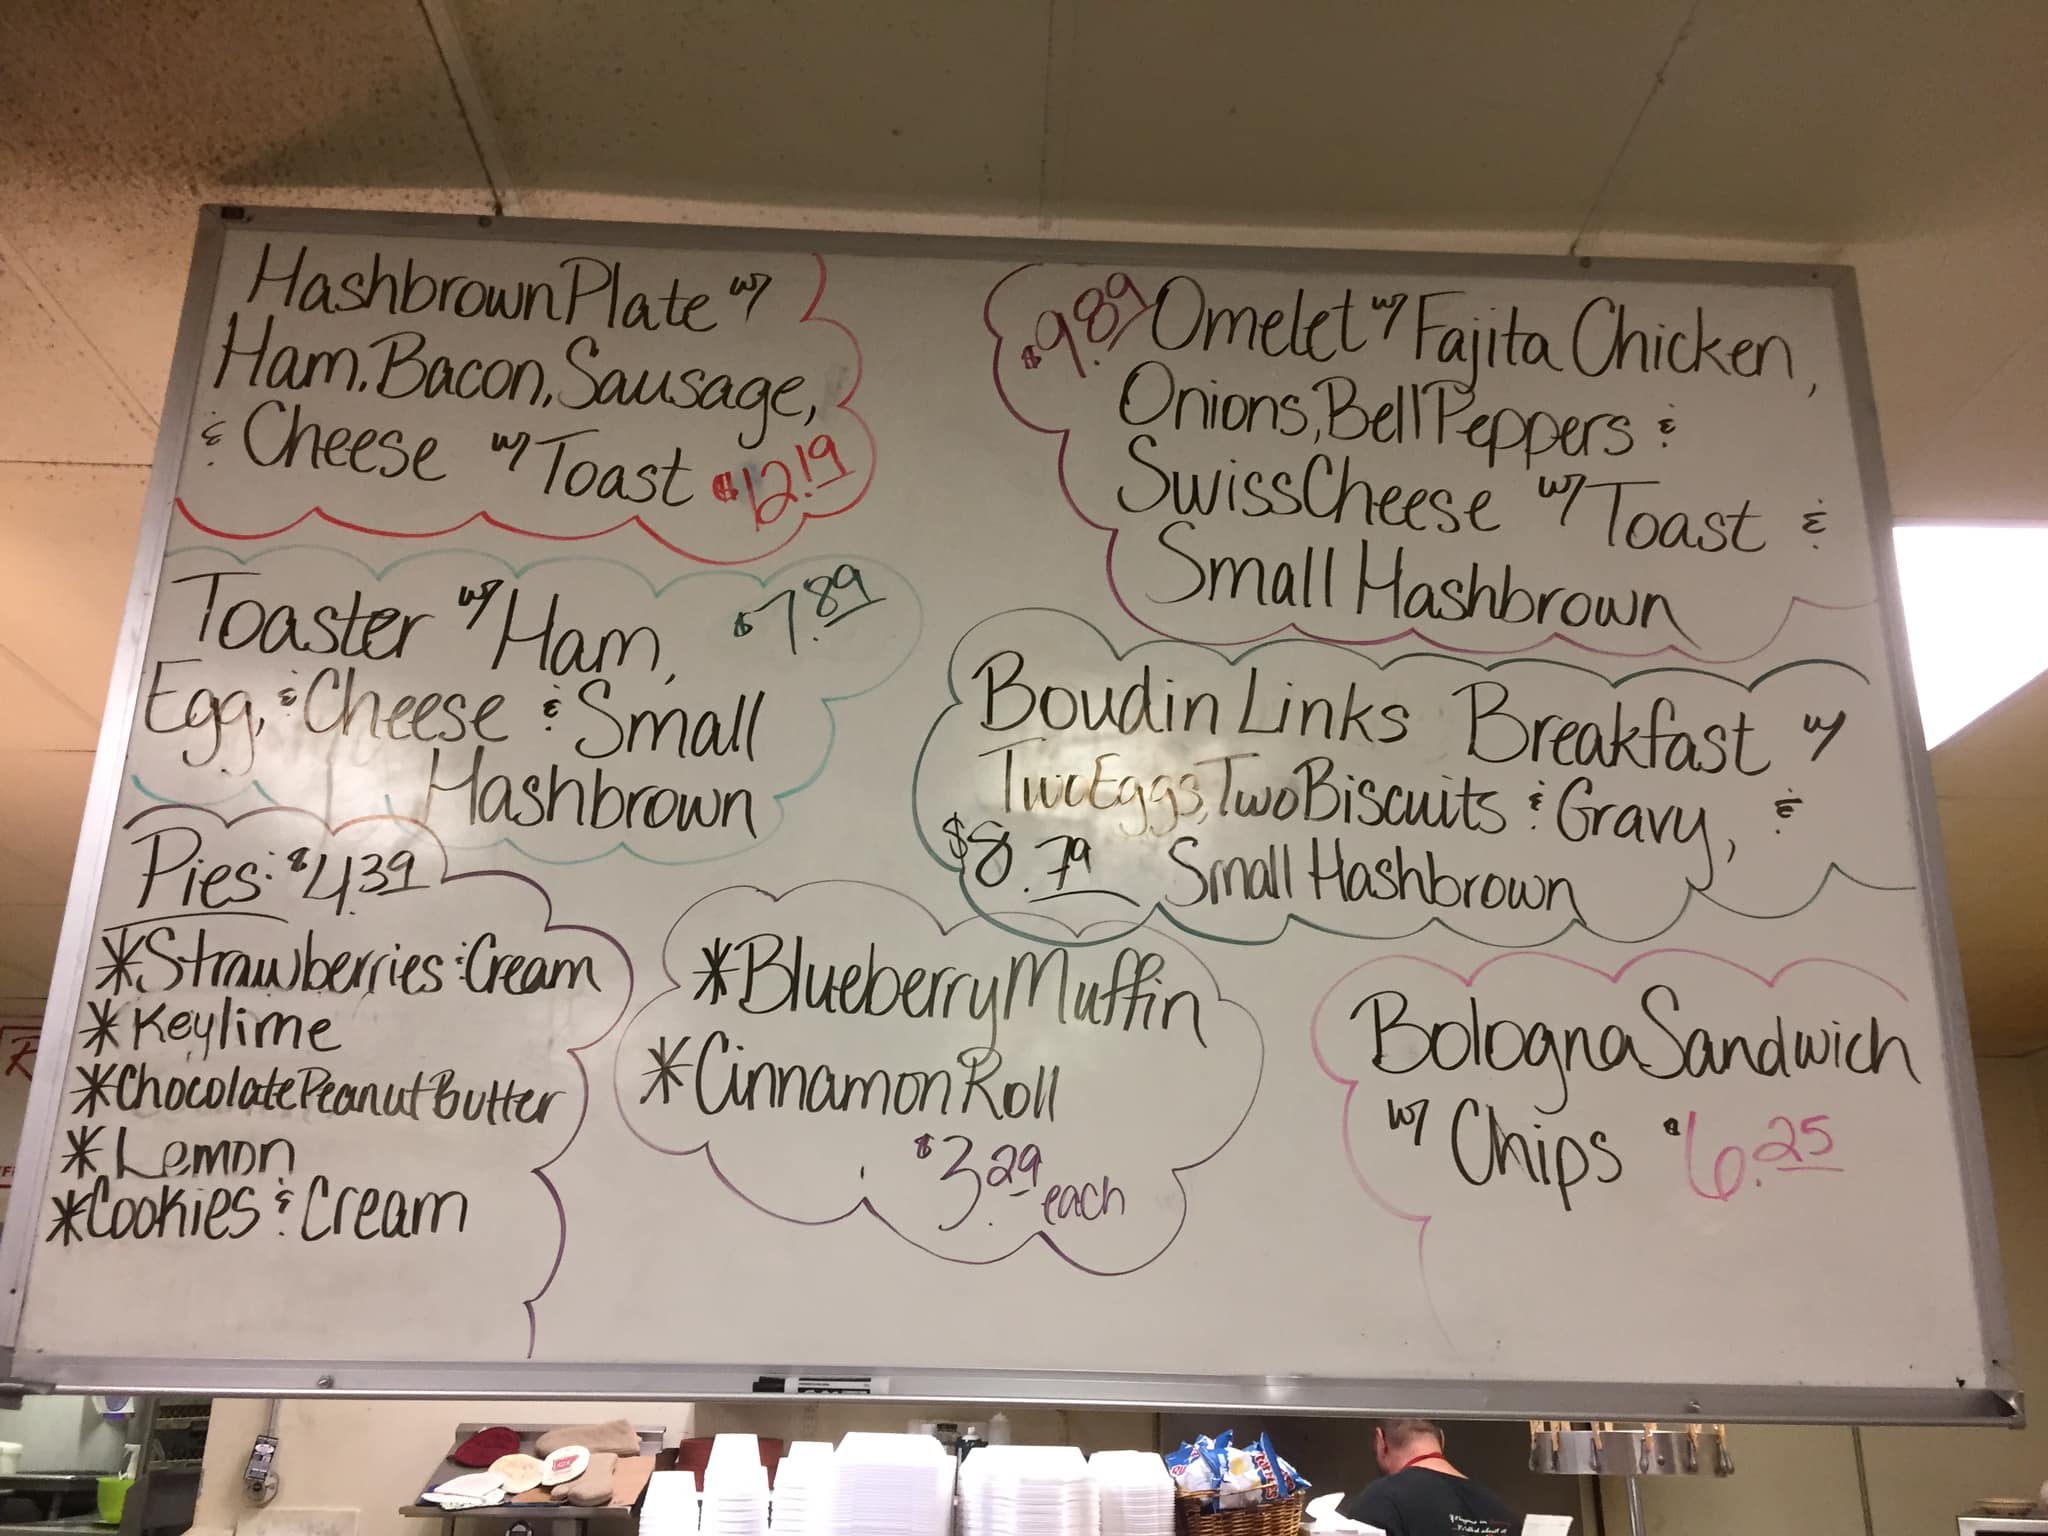 Hashbrown Plate w/
Ham, Bacon, Sausage,
& Cheese w/ Toast $12.19
Toaster w/ Ham, $7.89
Egg, & Cheese & Small
Hashbrown
Pies: $4.39
*Strawberries & Cream
*Keylime
*Chocolate Peanut Butter
*Lemon
*Cookies & Cream
$9.89 Omelet w/ Fajita Chicken,
Onions, Bell Peppers &
Swiss Cheese w/ Toast &
Small Hashbrown
Boudin Links Breakfast w/
Two Eggs, Two Biscuits & Gravy, &
$8.79 Small Hashbrown
*Blueberry Muffin
*Cinnamon Roll
$3.29 each
Bologna Sandwich
w/ Chips $6.25